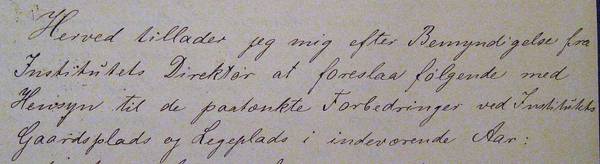 Herved tillader jeg mig efter Bemyndigelse fra
Institutets Direktør at foreslaa følgende med
Hensyn til de paatænkte Forbedringer ved Institutets
Gaardsplads og Legeplads i indeværende Aar: